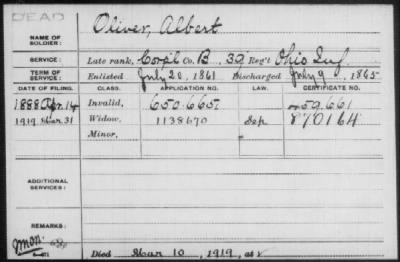 DEAD
NAME OF SOLDIER: Oliver, Albert
SERVICE: Late rank, Corp'l Co. B, 32 Reg't Ohio Inf.
TERM OF SERVICE: Enlisted July 20, 1861 Discharged July 9, 1865
DATE OF FILING. CLASS. APPLICATION NO. LAW. CERTIFICATE NO.
1888 Apr. 14 Invalid, 650.665 459.661
1919 Mar. 31 Widow, 1138670 Sep 870164
Minor,
ADDITIONAL SERVICES:
REMARKS:
Died Mar 10, 1919, at